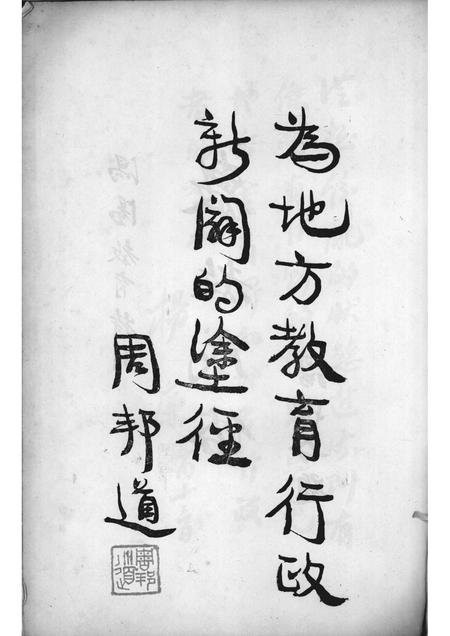 為地方教育行政
新闢的塗徑
周邦道